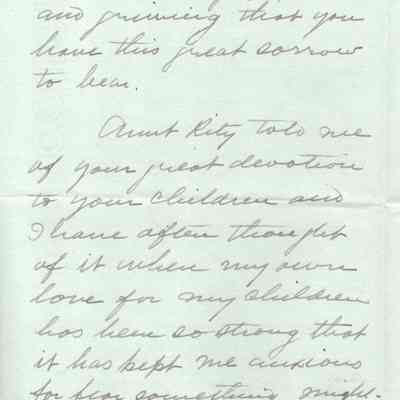 and grieving that you
have this great sorrow
to bear.
Aunt Kity told me
of your great devotion
to your children and
I have often thought
of it when my own
love for my children
has been so strong that
it has kept me anxious
for fear something might-